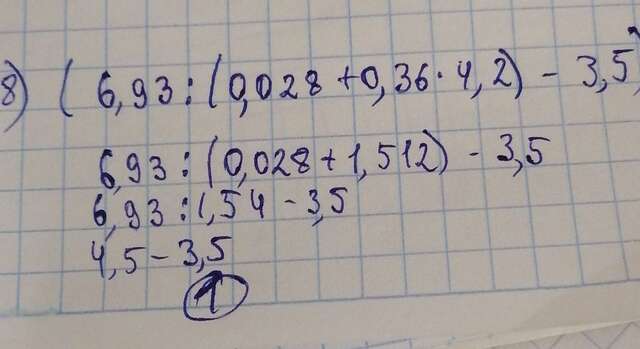 8) (6,93:(0,028+0,36·4,2)-3,5)
6,93:(0,028+1,512)-3,5
6,93:1,54-3,5
4,5-3,5
1